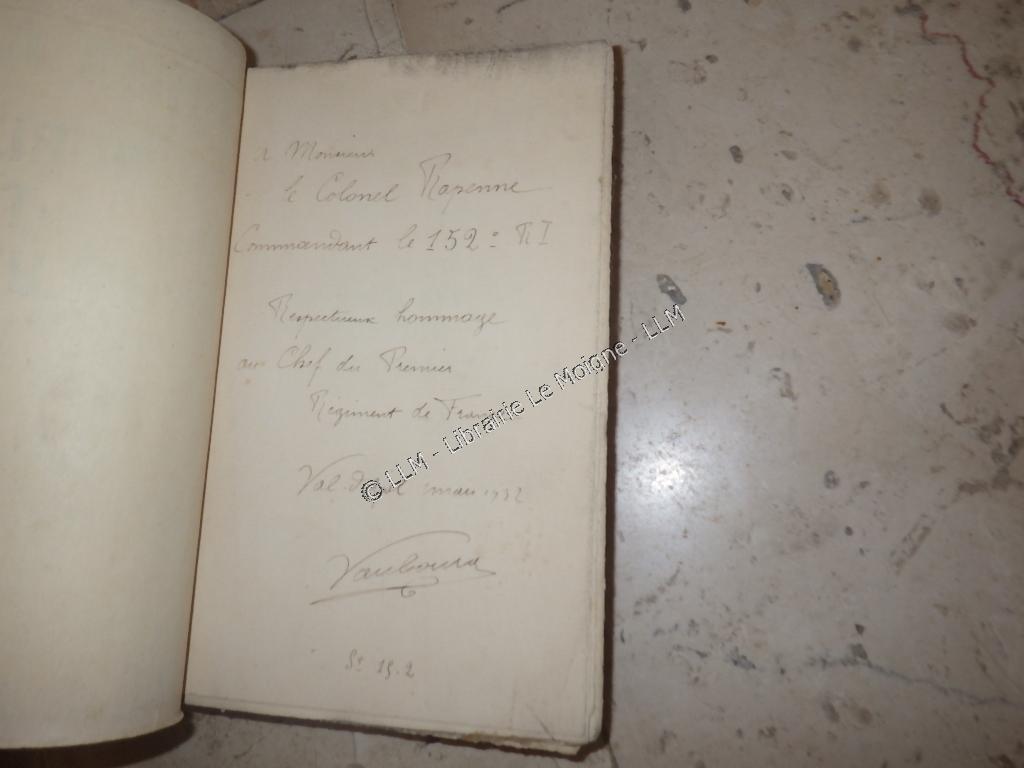 A Monsieur
le Colonel Rapenne
Commandant le 152e RI
Respectueux hommage
au Chef du Premier
Régiment de France
mars 1932
Vaubourg
St 15.2
© LLM - Librairie Le Moigne - LLM